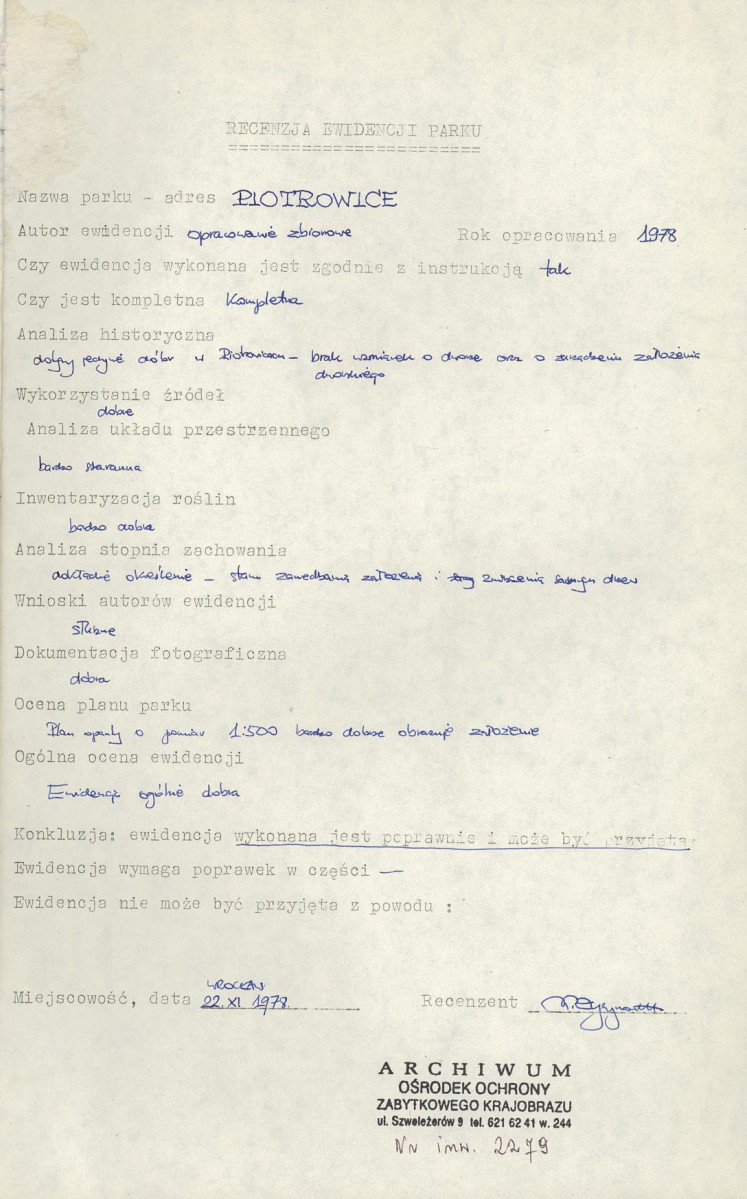 RECENZJA EWIDENCJI PARKU
========================
Nazwa parku - adres PIOTROWICE
Autor ewidencji opracowanie zbiorowe Rok opracowania 1978
Czy ewidencja wykonana jest zgodnie z instrukcją tak
Czy jest kompletna Kompletna
Analiza historyczna
dotyczy jedynie dóbr w Piotrowicach - brak wzmianek o dworze oraz o urządzeniu założenia
dworskiego
Wykorzystanie źródeł
dobre
Analiza układu przestrzennego
bardzo staranna
Inwentaryzacja roślin
bardzo dobra
Analiza stopnia zachowania
dokładne określenie - stanu zaniedbania założenia i drzew
Wnioski autorów ewidencji
słuszne
Dokumentacja fotograficzna
dobra
Ocena planu parku
Plan oparty o pomiar 1:500 bardzo dobrze obrazuje założenie
Ogólna ocena ewidencji
Ewidencja ogólnie dobra
Konkluzja: ewidencja wykonana jest poprawnie i może być przyjęta.
Ewidencja wymaga poprawek w części —
Ewidencja nie może być przyjęta z powodu :
WROCŁAW
Miejscowość, data 22.XI 1978. Recenzent
ARCHIWUM
OŚRODEK OCHRONY
ZABYTKOWEGO KRAJOBRAZU
ul. Szwoleżerów 9 tel. 621 62 41 w. 244
Nr inw. 2279